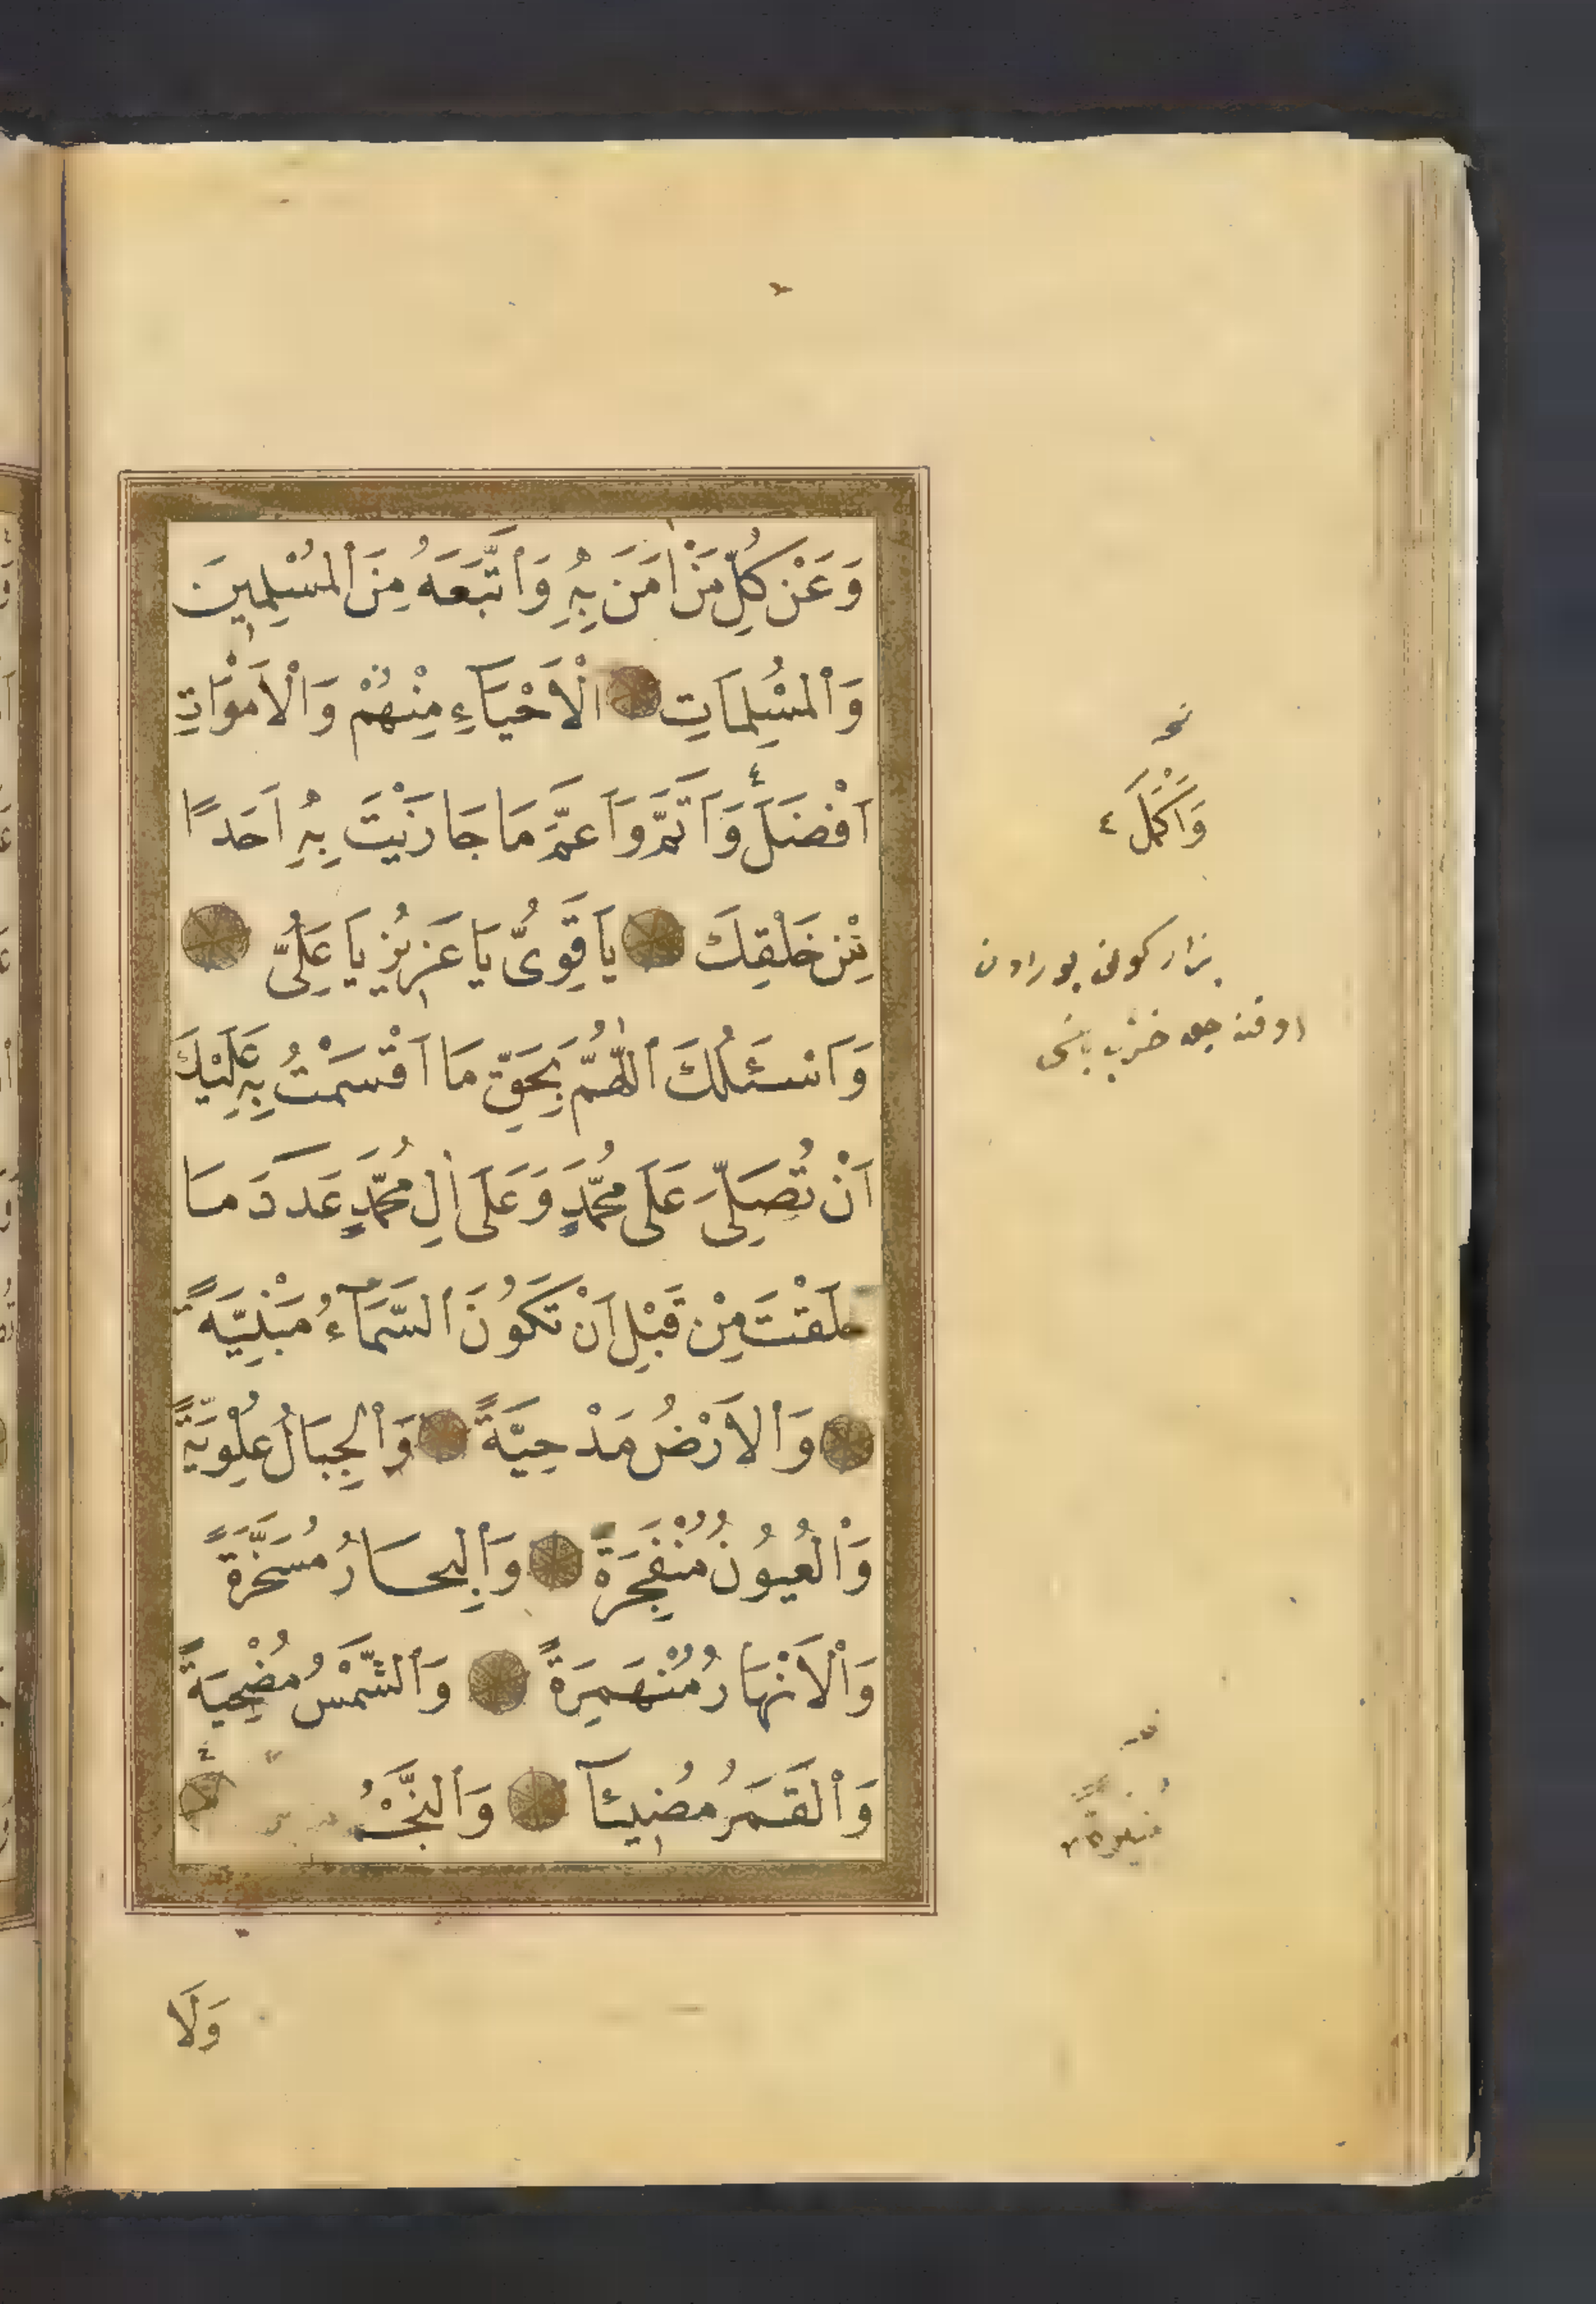 وَعَنْ كُلِّ مَنْ اٰمَنَ بِهٖ وَاتَّبَعَهُ مِنَ الْمُسْلِمِينَ
وَالْمُسْلِمَاتِ الْاَحْيَاءِ مِنْهُمْ وَالْاَمْوَاتِ
اَفْضَلَ وَاَتَمَّ وَاَعَمَّ مَا جَازَيْتَ بِهٖ اَحَدًا
مِنْ خَلْقِكَ يَا قَوِىُّ يَا عَزِيزُ يَا عَلِىُّ
وَاَسْئَلُكَ اللّٰهُمَّ بِحَقِّ مَا اَقْسَمْتُ بِهٖ عَلَيْكَ
اَنْ تُصَلِّىَ عَلَى مُحَمَّدٍ وَعَلَى اٰلِ مُحَمَّدٍ عَدَدَ مَا
خَلَقْتَ مِنْ قَبْلِ اَنْ تَكُونَ السَّمَاءُ مَبْنِيَّةً
وَالْاَرْضُ مَدْحِيَّةً وَالْجِبَالُ عُلْوِيَّةً
وَالْعُيُونُ مُنْفَجِرَةً وَالْبِحَارُ مُسَخَّرَةً
وَالْاَنْهَارُ مُنْهَمِرَةً وَالشَّمْسُ مُضْحِيَةً
وَالْقَمَرُ مُضِيئًا وَالنَّجْمُ
وَلَا
وَاَكْمَلَ ٤
بازار كونی بورادن